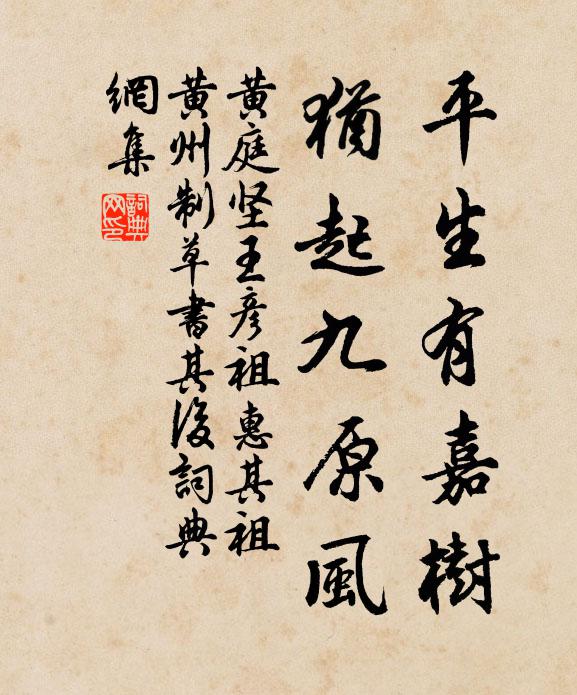 平生有嘉樹
猶起九原風
黄庭坚王彦祖惠其祖
黄州制草書其後詞典
網集
詞典網印